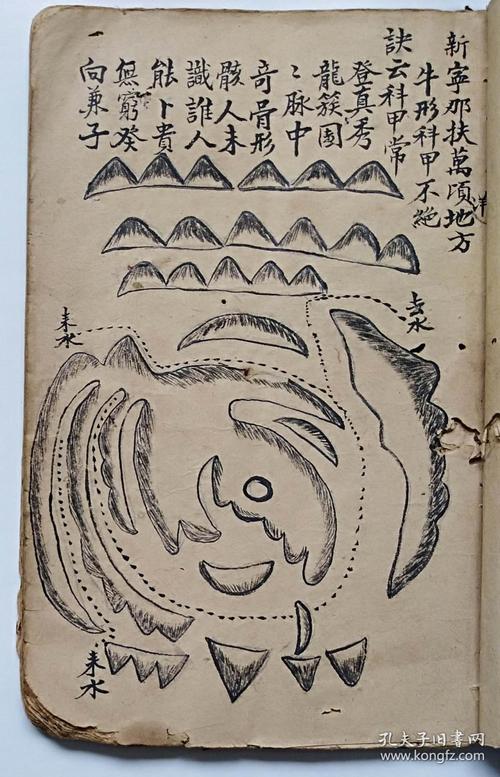 新寧那扶萬頃地方
洋
牛形科甲不絶
訣云科甲常
登真秀
龍簇圍
〻脉中
奇骨形
骸人未
識誰人
能卜貴
無窮癸
向兼子
来水
去水
来水
孔夫子旧书网
www.kongfz.com